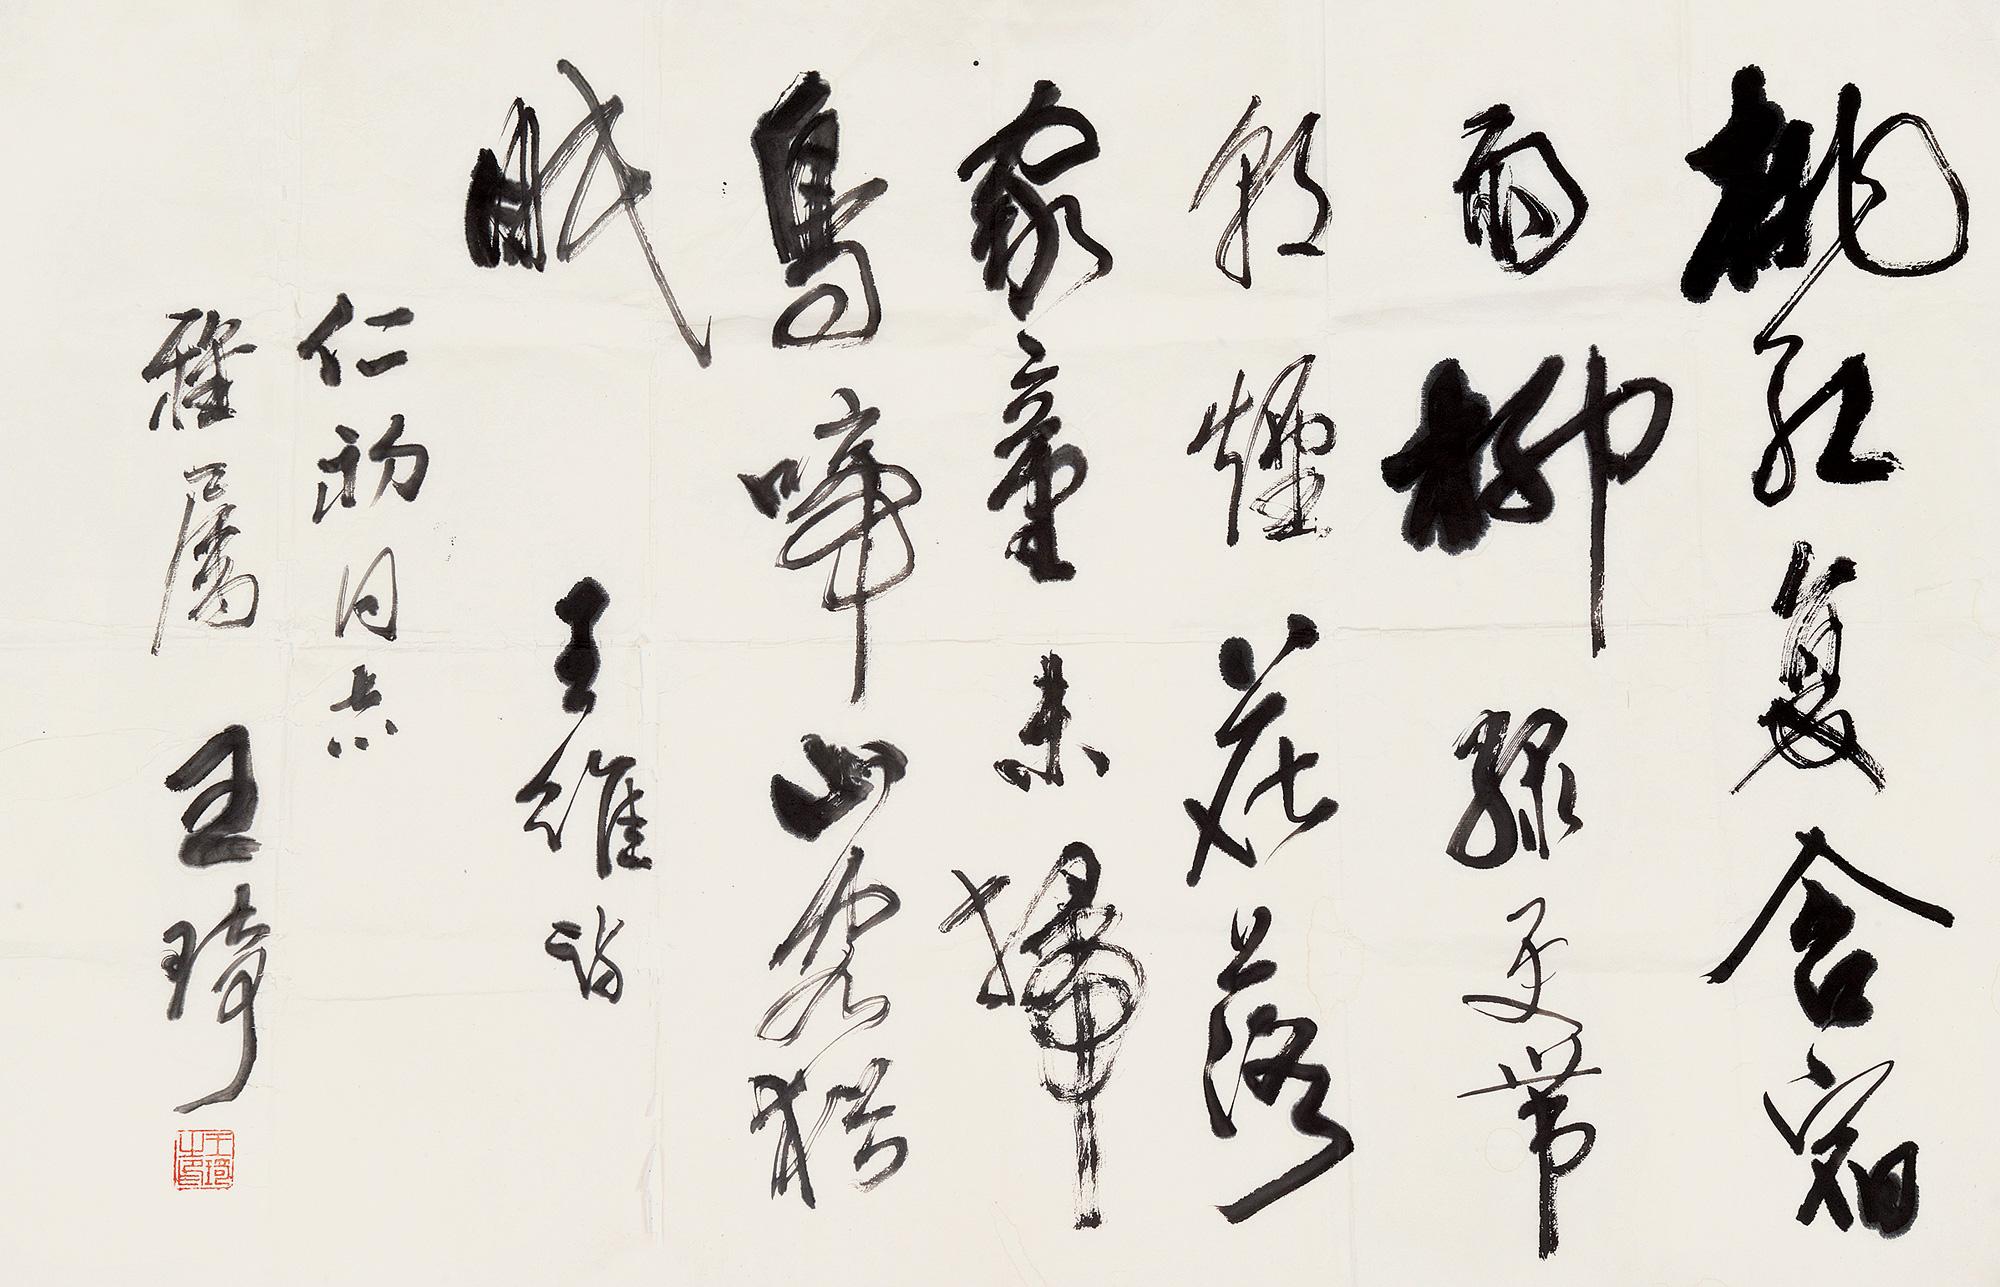 桃红复含宿
雨柳绿更带
朝煙花落
家童未掃
鳥啼山客猶
眠
王維詩
仁初同志
雅属 王琦
王琦之印